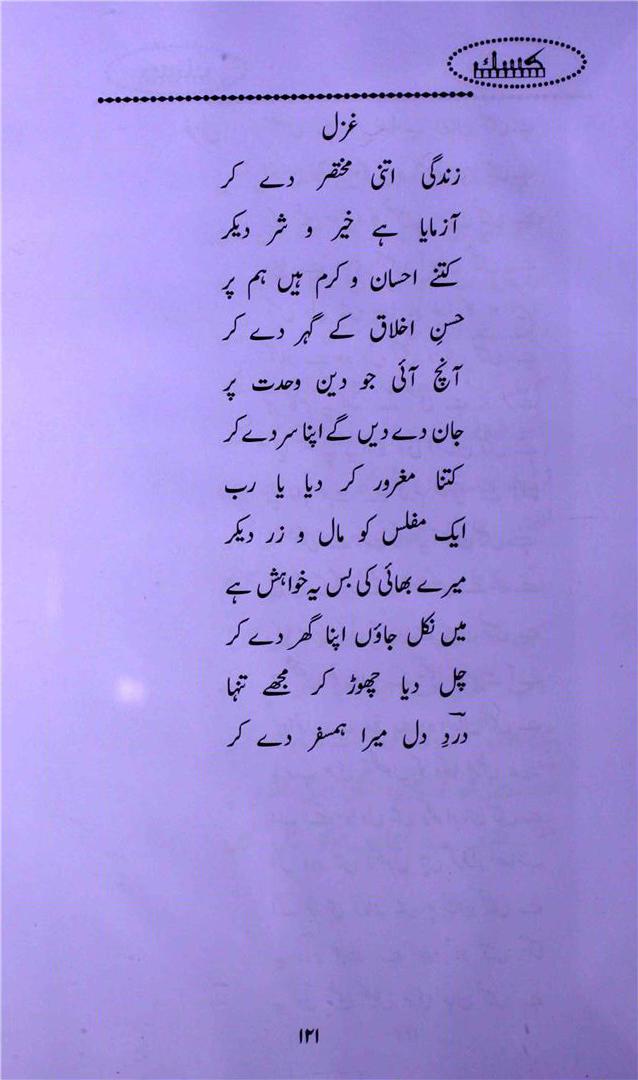 کسک
غزل
زندگی اتنی مختصر دے کر
آزمایا ہے خیر و شر دیکر
کتنے احسان و کرم ہیں ہم پر
حسنِ اخلاق کے گہر دے کر
آنچ آئی جو دین وحدت پر
جان دے دیں گے اپنا سر دے کر
کتنا مغرور کر دیا یا رب
ایک مفلس کو مال و زر دیکر
میرے بھائی کی بس یہ خواہش ہے
میں نکل جاؤں اپنا گھر دے کر
چل دیا چھوڑ کر مجھے تنہا
دردِ دل میرا ہمسفر دے کر
۱۲۱